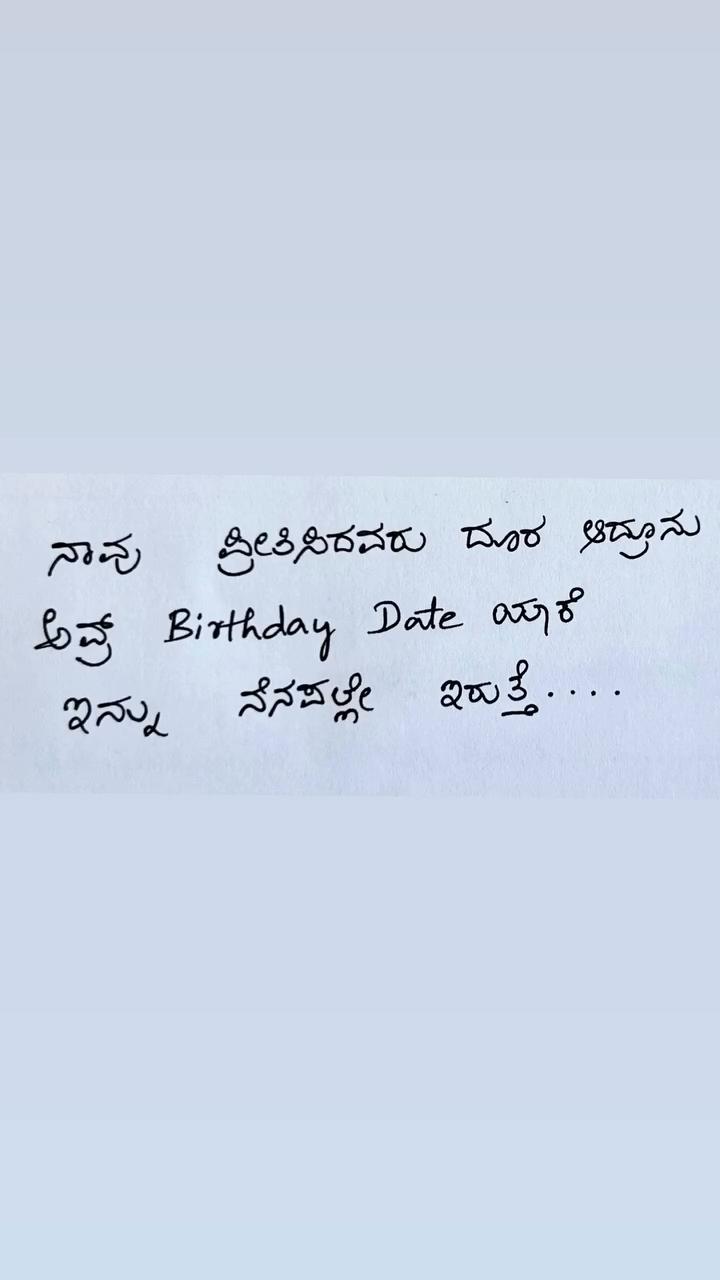 ನಾವು ಪ್ರೀತಿಸಿದವರು ದೂರ ಆದ್ರೂನು
ಅವ್ರ್ Birthday Date ಯಾಕೆ
ಇನ್ನು ನೆನಪಲ್ಲೇ ಇರುತ್ತೆ....